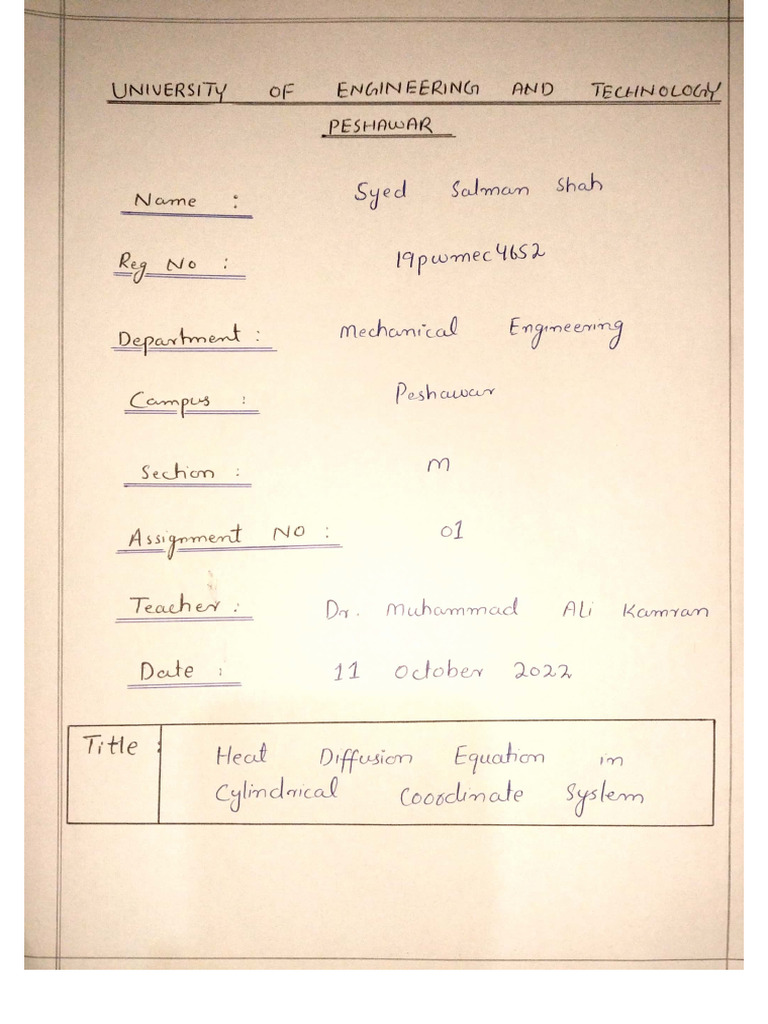 UNIVERSITY OF ENGINEERING AND TECHNOLOGY
PESHAWAR
Name : Syed Salman Shah
Reg No : 19pwmec4652
Department : Mechanical Engineering
Campus : Peshawar
Section : M
Assignment NO : 01
Teacher : Dr. Muhammad Ali Kamran
Date : 11 October 2022
Title : Heat Diffusion Equation in
Cylindrical Cooordinate System